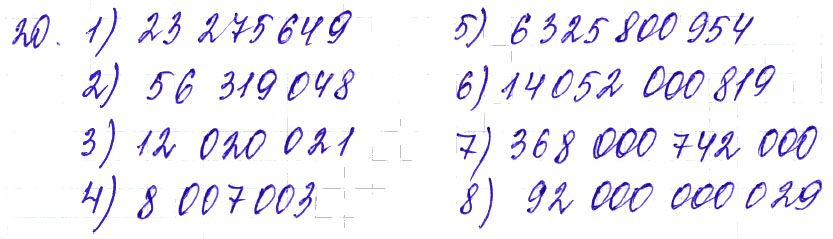 20. 1) 23 275 649
2) 56 319 048
3) 12 020 021
4) 8 007 003
5) 6 325 800 954
6) 14 052 000 819
7) 368 000 742 000
8) 92 000 000 029